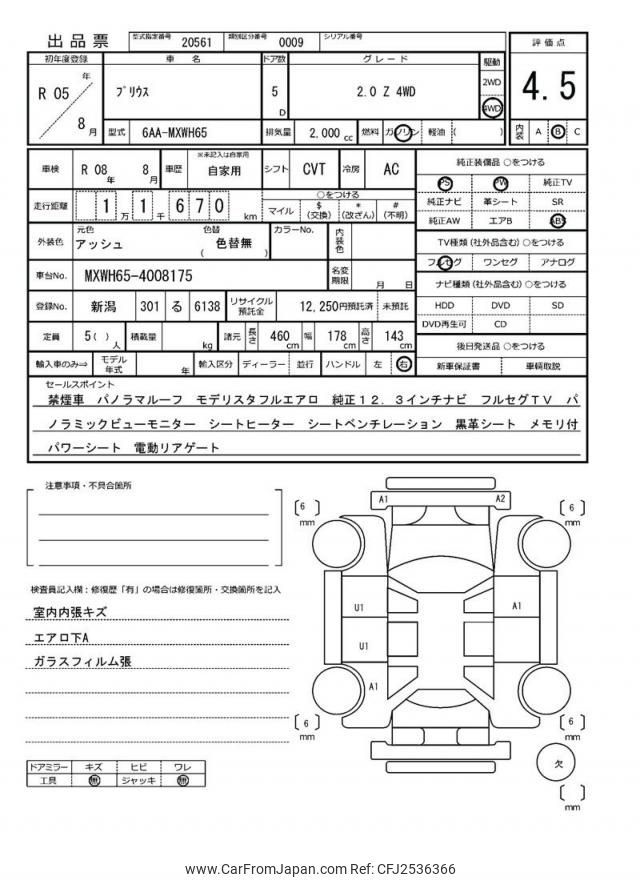 出品票 型式指定番号 20561 類別区分番号 0009 シリアル番号
初年度登録 車名 ドア数 グレード 駆動 評価点
R 05 年 8 月 プリウス 5 D 2.0 Z 4WD 2WD 4WD 4.5
型式 6AA-MXWH65 排気量 2,000 cc 燃料 ガソリン 軽油 ( ) 内装 A B C
車検 R 08 年 8 月 車歴 ※未記入は自家用 自家用 シフト CVT 冷房 AC
純正装備品 ○をつける
PS PW 純正TV
純正ナビ 革シート SR
純正AW エアB ABS
走行距離 1 万 1 千 6 7 0 km
○をつける
マイル $ (交換) * (改ざん) # (不明)
外装色 元色 アッシュ 色替 ( 色替無 ) カラーNo. 内装色
TV種類(社外品含む)○をつける
フルセグ ワンセグ アナログ
車台No. MXWH65-4008175 名変期限 月 日
ナビ種類(社外品含む)○をつける
HDD DVD SD
DVD再生可 CD
登録No. 新潟 301 る 6138 リサイクル預託金 12,250円預託済 未預託
定員 5( ) 人 積載量 kg 諸元 長さ 460 cm 幅 178 cm 高さ 143 cm
後日発送品 ○をつける
新車保証書 車輌取説
輸入車のみ⇒ モデル年式 年 輸入区分 ディーラー 並行 ハンドル 左 右
セールスポイント
禁煙車 パノラマルーフ モデリスタフルエアロ 純正12.3インチナビ フルセグTV パ
ノラミックビューモニター シートヒーター シートベンチレーション 黒革シート メモリ付
パワーシート 電動リアゲート
注意事項・不具合箇所
検査員記入欄:修復歴「有」の場合は修復箇所・交換箇所を記入
室内内張キズ
エアロ下A
ガラスフィルム張
ドアミラー キズ ヒビ ワレ
工具 無 ジャッキ 無
6 mm
A1 A2
6 mm
U1
A1
U1
A1
6 mm
6 mm
欠
mm
www.CarFromJapan.com Ref: CFJ2536366